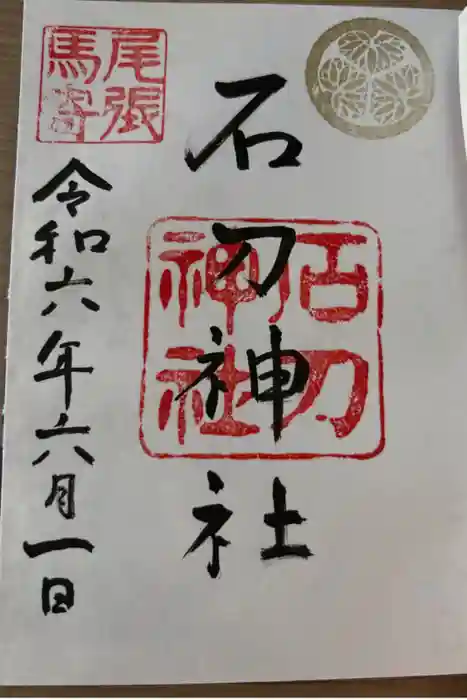 尾張
馬寄
石刀神社
石刀
神社
令和六年六月一日